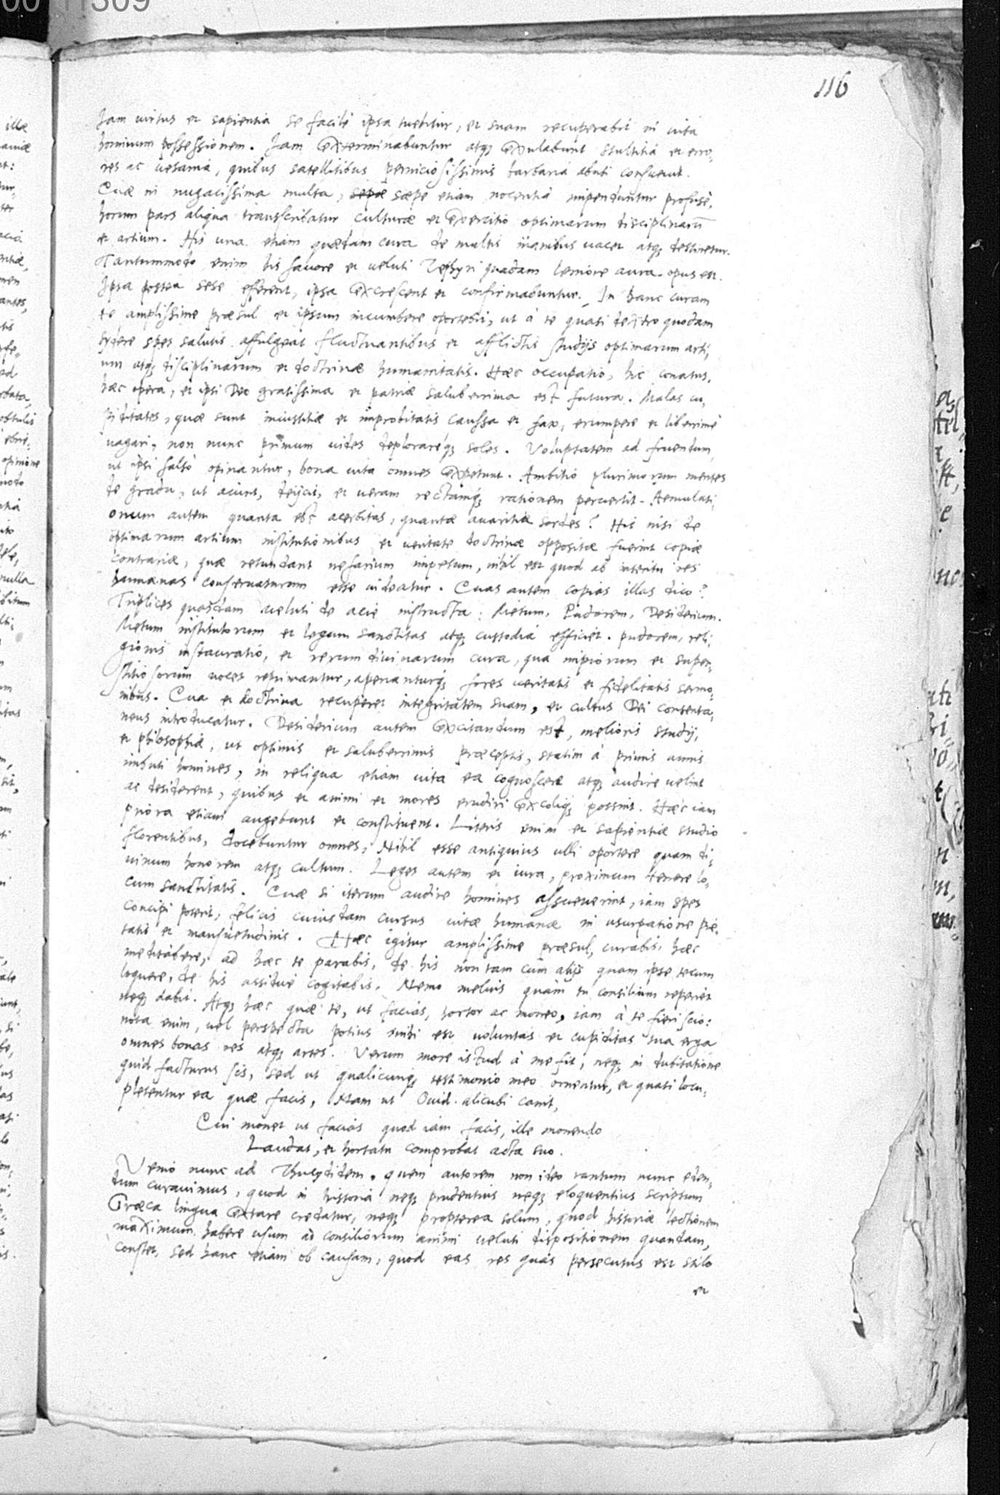 116
Iam uirtus et sapientia se facile ipsa tuebitur, et suam recuperabit in uita
hominum possessionem. Iam exterminabuntur atq; exulabunt stultitia et erro,
res ac uesania, quibus satellitibus perniciosissimis barbaria abuti consueuit.
Quae in nugacissima multa, sepae saepe etiam nocentia impenduntur profusè,
horum pars aliqua transferatur culturae et exercitio optimarum disciplinarũ
et artium. His una etiam quaedam cura de multis inanibus uacet atq; destinetur.
Tantummodo enim his fauore et ueluti Zephyri quadam leniore aura opus est.
Ipsa postea sese efferent, ipsa excrescent et confirmabuntur. In hanc curam
te amplissime praesul et ipsum incumbere oportebit, ut à te quasi dextro quodam
sydere spes salutis affulgeat fluctuantibus et afflictis studijs optimarum arti,
um atq; disciplinarum et doctrinae humanitatis. Haec occupatio, hic conatus,
haec opera, et ipsi Deo gratissima et patriae saluberrima est futura. Malas cu,
piditates, quae sunt iniustitiae et improbitatis caussa et fax, erumpere et liberrimè
uagari, non nunc primum uides deplorareq; soles. Voluptatem ad fruendum,
ut ipsi falsò opinantur, bona uita omnes expetunt. Ambitio plurimorum mentes
de gradu, ut aiunt, deijcit, et ueram rectamq; rationem peruertit. Aemulati,
onum autem quanta est acerbitas, quantae auaritiae sordes? His nisi de
optimarum artium institutionibus et ueritate doctrinae oppositae fuerint copiae
contrariae, quae retundant nefarium impetum, nihil est quod ab interitu res
humanas conseruaturum esse uideatur. Quas autem copias illas dico?
Triplices quasdam ueluti de acie instructa: Metum, Pudorem, Desiderium.
Metum institutorum et legum sanctitas atq; custodia efficiet. pudorem, reli,
gionis instauratio, et rerum diuinarum cura, qua impiorum et super,
stitiosorum uoces retrimantur, aperianturq; fores ueritatis et fidelitatis sermo,
nibus. Qua et doctrina recuperet integritatem suam, et cultus Dei contenta,
neus introducatur. Desiderium autem excitandum est, melioris studij,
et philosophiae, ut optimis et saluberrimis praeceptis, statim à primis annis
imbuti homines, in reliqua etiam uita ea cognoscere atq; audire uelint
ac desiderent, quibus et animi et mores erudiri excoliq; possint. Haec iam
priora etiam augebunt et constituent. Literis enim et sapientiae studio
florentibus, docebuntur omnes, Nihil esse antiquius ulli oportere quam di,
uinum honorem atq; cultum. Leges autem et iura, proximum tenere lo,
cum sanctitatis. Quae si iterum audire homines assueuerint, iam spes
concipi poterit, felicis cuiusdam cursus uitae humanae in usurpatione pie,
tatis et mansuetudinis. Haec igitur amplissime praesul, curabis: haec
meditabere, ad haec te parabis, de his non tam cum alijs quam ipse tecum
loquere, de his assiduè cogitabis. Nemo melius quàm tu consilium reperiet
neq; dabit. Atq; haec quae te, ut facias, hortor ac moneo, iam à te fieri scio:
nota enim, uel perspecta potius mihi est uoluntas et cupiditas tua erga
omnes bonas res atq; artes. Verum more istud à me fit, neq; in dubitatione
quid facturus sis, sed ut qualicunq; testimonio meo ornentur, et quasi locu,
pletentur ea quae facis, Nam ut Ouid. alicubi canit,
Qui monet ut facias quod iam facis, ille monendo
Laudat, et hortatu comprobat acta suo.
Venio nunc ad Thucydidem. quem autorem non ideo tantum nunc eden,
dum curauimus, quod in historia neq; prudentius neq; eloquentius scriptum
Graeca lingua extare credatur, neq; propterea solum, quod historiae lectionem
maximum habere usum ad consiliorum animi ueluti dispositionem quandam,
constet, sed hanc etiam ob causam, quod eas res quas persecutus est stilo
et